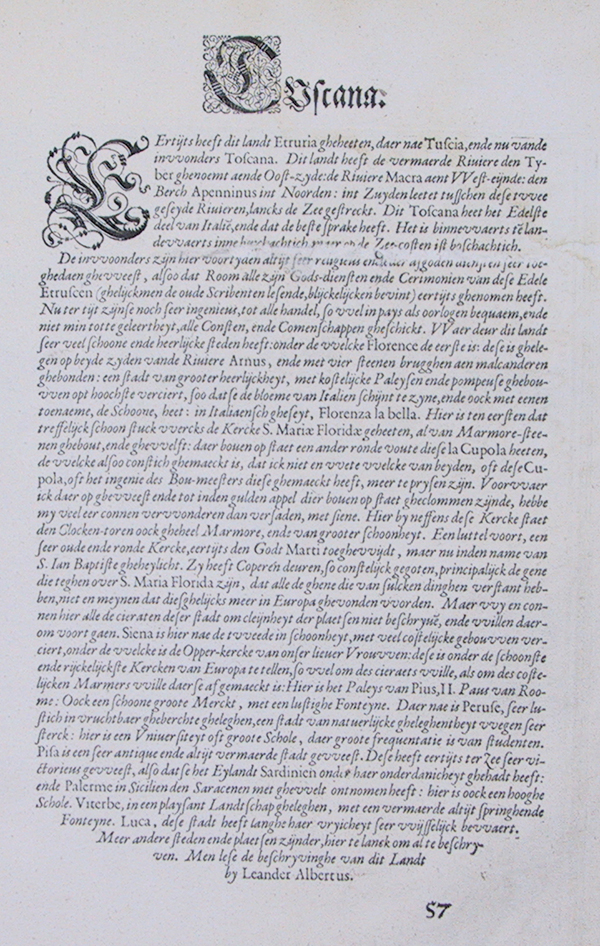 TVscana.
EErtijts heeft dit landt Etruria gheheeten, daer nae Tuscia, ende nu vande
invvonders Toscana. Dit landt heeft de vermaerde Riuiere den Ty-
ber ghenoemt aende Oost-zyde: de Riuiere Macra aent VVest-eijnde: den
Berch Apenninus int Noorden: int Zuyden leetet tusschen dese tvvee
geseyde Riuieren, lancks de Zee gestreckt. Dit Toscana heet het Edelste
deel van Italië, ende dat de beste sprake heeft. Het is binnevvaerts të lan-
devvaerts inne ende Zee-costen ist boschachtich.
De invvoonders zijn hier voortyden altijt seer religieus ende
ghedaen ghevveest, alsoo dat Room alle zijn Gods-diensten ende Cerimonien van dese Edele
Etruscen (ghelijckmen de oude Scribenten lesende, blijckelijcken bevint) eertijts ghenomen heeft.
Nu ter tijt zijnse noch seer ingenieus, tot alle handel, so vvel in pays als oorlogen bequaem, ende
niet min totte geleertheyt, alle Consten, ende Comenschappen gheschickt. VVaer deur dit landt
seer veel schoone ende heerlijcke steden heeft: onder de vvelcke Florence de eerste is: dese is ghele-
gen op beyde zyden vande Riuiere Arnus, ende met vier steenen brugghen aen malcanderen
ghebonden: een stadt van grooter heerlijckheyt, met kostelijcke Paleysen ende pompeuse ghebou-
vven opt hoochste verciert, soo datse de bloeme van Italien schijnt te zyne, ende oock met eenen
toenaeme, de Schoone, heet: in Italiaensch gheseyt, Florenza la bella. Hier is ten eersten dat
treffelijck schoon stuck vvercks de Kercke S. Mariæ Floridæ geheeten, al van Marmore-stee-
nen ghebout, ende ghevvelft: daer bouen op staet een ander ronde voute diese la Cupola heeten,
de vvelcke alsoo constich ghemaeckt is, dat ick niet en vvete vvelcke van beyden, oft dese Cu-
pola, oft het ingenie des Bou-meesters diese gemaeckt heeft, meer te prysen zijn. Voorvvaer
ick daer op ghevveest ende tot inden gulden appel dier bouen op staet gheclommen zijnde, hebbe
my veel eer connen vervvonderen dan versaden, met siene. Hier by neffens dese Kercke staet
den Clocken-toren oock gheheel Marmore, ende van grooter schoonheyt. Een luttel voort, een
seer oude ende ronde Kercke, eertijts den Godt Marti toeghevvijdt, maer nu inden name van
S. Ian Baptiste gheheylicht. Zy heeft Coperen deuren, so constelijck gegoten, principalijck de gene
die teghen over S. Maria Florida zijn, dat alle de ghene die van sulcken dinghen verstant heb-
ben, niet en meynen dat diesghelijcks meer in Europa ghevonden vvorden. Maer vvy en con-
nen hier alle de cieraten deser stadt om cleijnheyt der plaetsen niet beschryuē, ende vvillen daer-
om voort gaen. Siena is hier nae de tvveede in schoonheyt, met veel costelijcke gebouvven ver-
ciert, onder de vvelcke is de Opper-kercke van onser lieuer Vrouvven: dese is onder de schoonste
ende rijckelijckste Kercken van Europa te tellen, so vvel om des cieraets vville, als om des coste-
lijcken Marmers vville daerse af gemaeckt is: Hier is het Paleys van Pius, II. Paus van Roo-
me: Oock een schoone groote Merckt, met een lustighe Fonteyne. Daer nae is Peruse, seer lu-
stich in vruchtbaer gheberchte gheleghen, een stadt van natuerlijcke gheleghentheyt vvegen seer
sterck: hier is een Vniuersiteyt oft groote Schole, daer groote frequentatie is van studenten.
Pisa is een seer antique ende altijt vermaerde stadt gevveest. Dese heeft eertijts ter Zee seer vi-
ctorieus gevveest, also datse het Eylandt Sardinien onder haer onderdanicheyt ghehadt heeft:
ende Palerme in Sicilien den Saracenen met ghevvelt ontnomen heeft: hier is oock een hooghe
Schole. Viterbe, in een playsant Landtschap gheleghen, met een vermaerde altijt springhende
Fonteyne. Luca, dese stadt heeft langhe haer vryicheyt seer vvijsselijck bevvaert.
Meer andere steden ende plaetsen zijnder, hier te lanck om al te beschry-
ven. Men lese de beschryvinghe van dit Landt
by Leander Albertus.
57